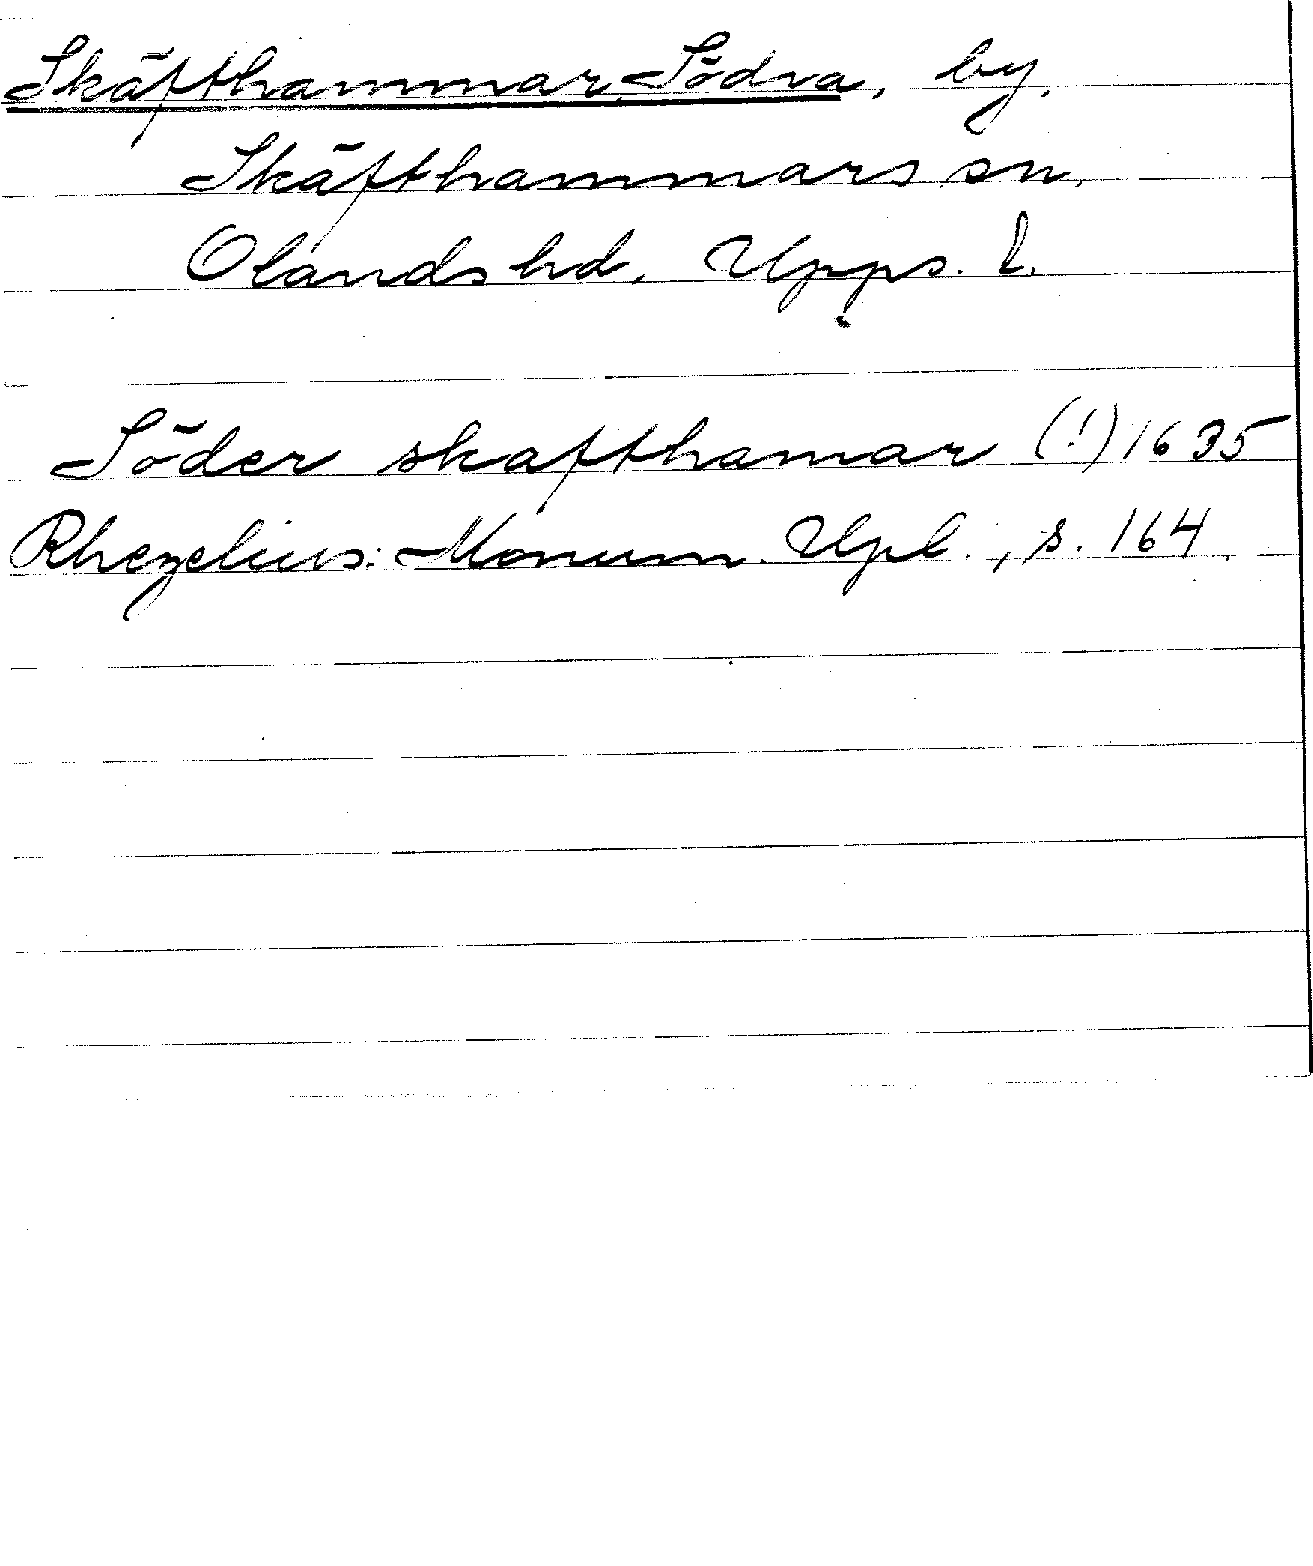 Skäfthammar, Södra, by,
Skäfthammars sn,
Olands hd, Upps. l.
Söder skafthamar (!) 1635
Rhezelius: Monum. Upl., s. 164.